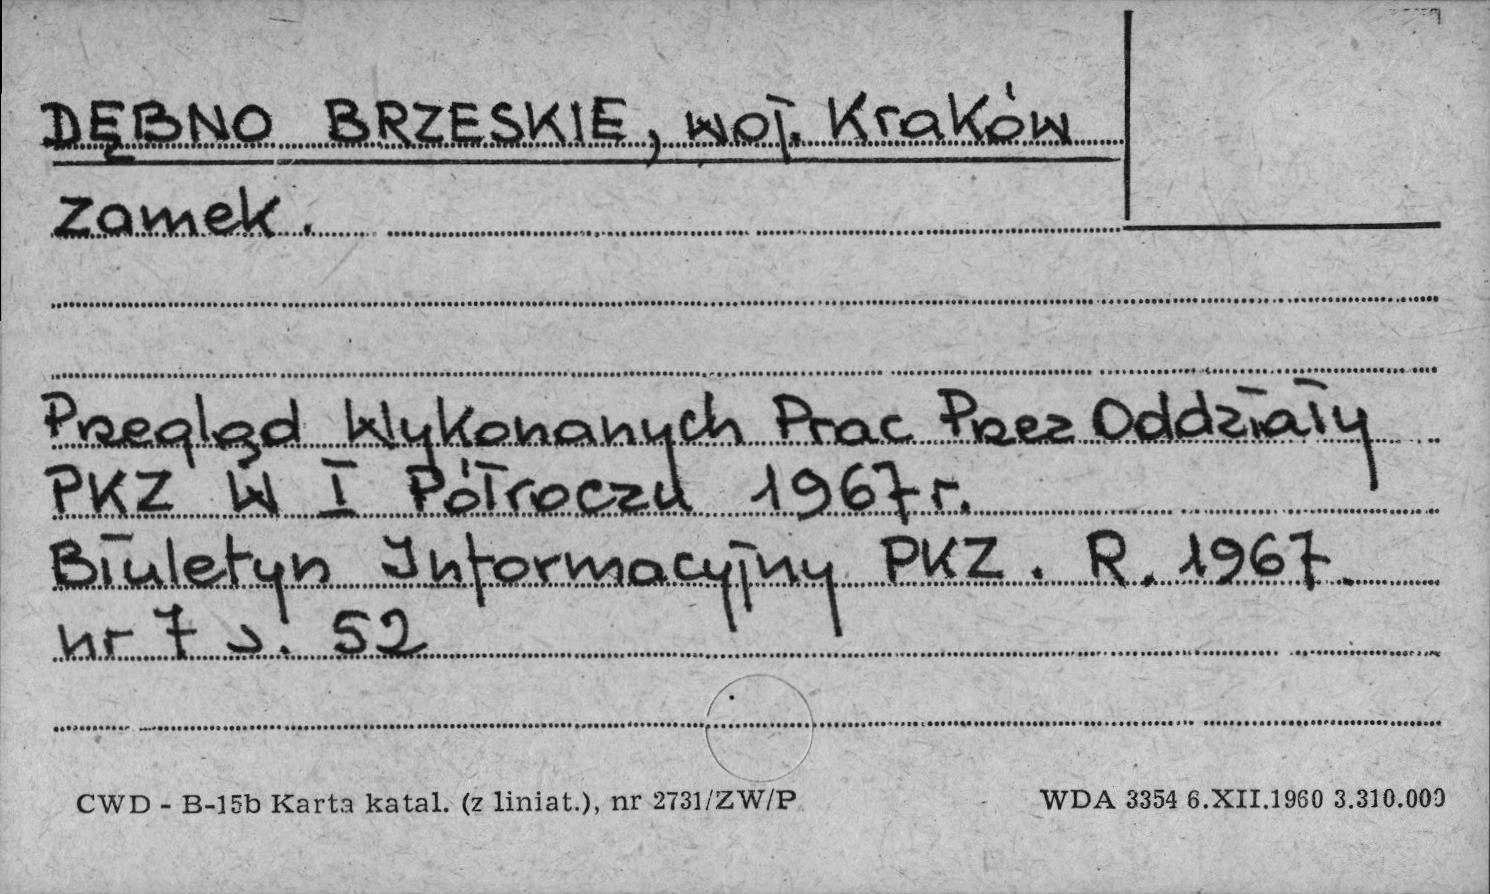 DĘBNO BRZESKIE, woj. Kraków
Zamek.
Przegląd Wykonanych Prac Przez Oddziały
PKZ W I Półroczu 1967 r.
Biuletyn Informacyjny PKZ. R. 1967.
nr 7 s. 52
CWD - B-15b Karta katal. (z liniat.), nr 2731/ZW/P
WDA 3354 6.XII.1960 3.310.000